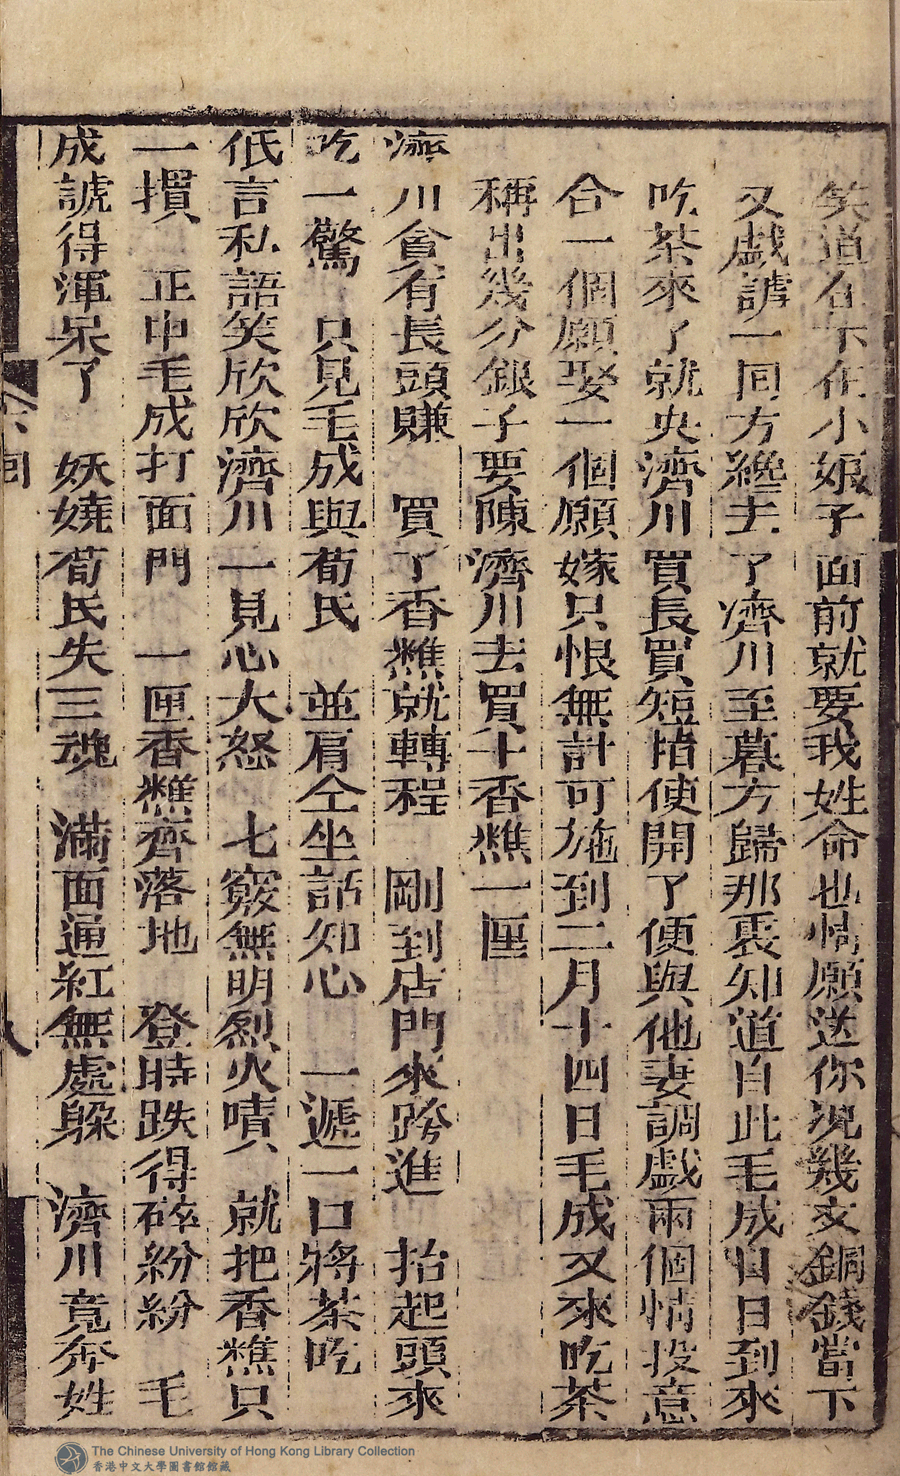 笑道在下在小娘子面前就要我姓命也情願送你況幾文銅錢當下
又戲謔一囘方纔去了濟川至暮方歸那裏知道自此毛成日日到來
吃茶來了就央濟川買長買短指使開了便與他妻調戲兩個情投意
合一個願娶一個願嫁只恨無計可施到二月十四日毛成又來吃茶
稱出幾分銀子要陳濟川去買十香𥻦一匣
濟川貪有長頭賺　買了香𥻦就轉程　剛到店門來跨進　抬起頭來
吃一驚　只見毛成與荀氏　並肩仝坐話知心　一遞一口將茶吃
低言私語笑欣欣濟川一見心大怒　七竅無明烈火噴　就把香𥻦只
一摜　正中毛成打面門　一匣香𥻦齊落地　登時跌得碎紛紛　毛
成諕得渾呆了　妖嬈荀氏失三魂　滿面通紅無處躲　濟川竟奔姓
The Chinese University of Hong Kong Library Collection
香港中文大學圖書館館藏